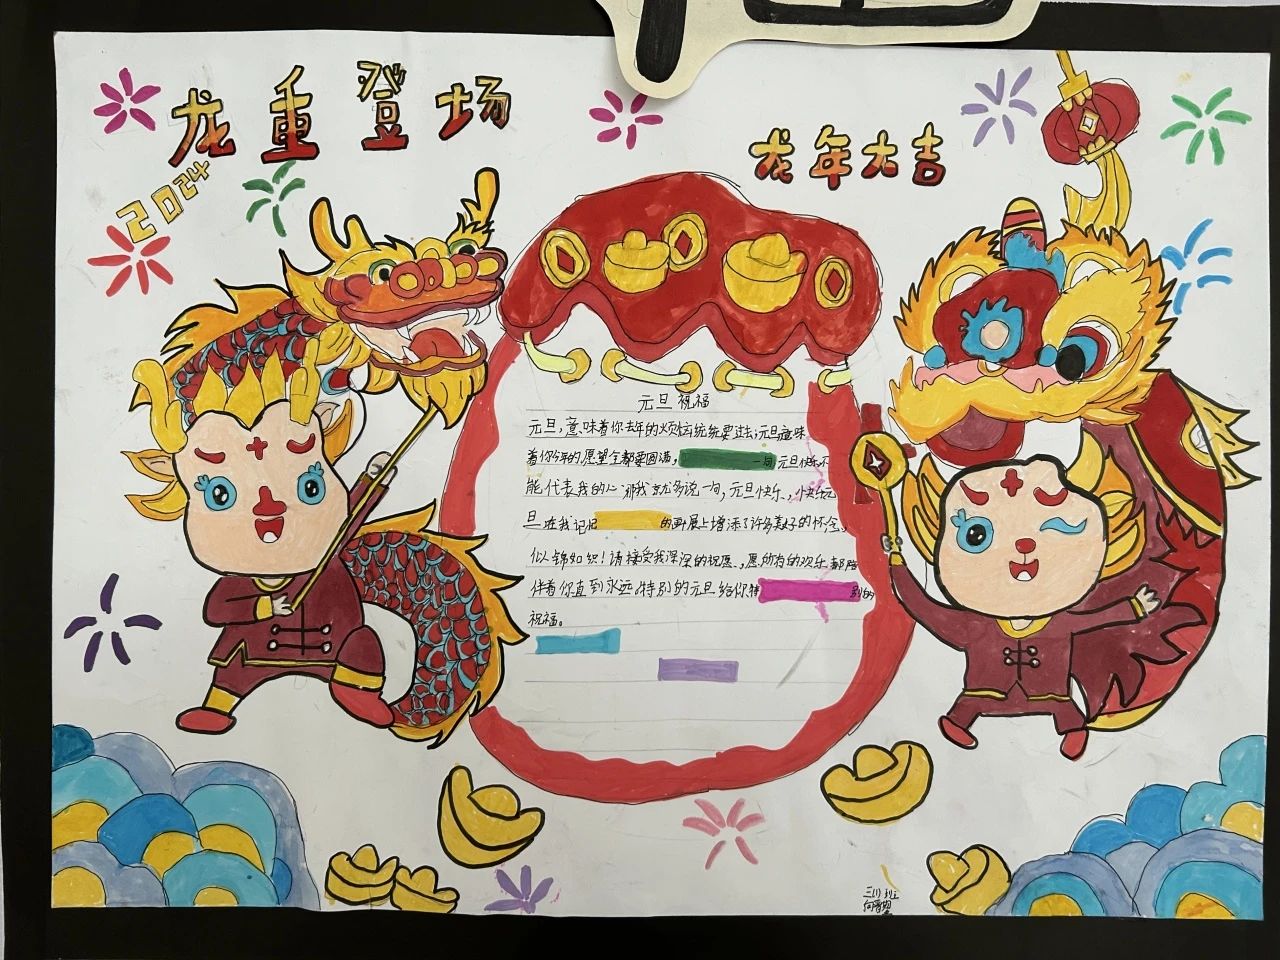 龙重登场
龙年大吉
2024
元旦祝福
元旦,意味着你去年的烦恼统统要过去;元旦意味
着你今年的愿望全都要圆满。一句元旦快乐不
能代表我的心,那我就多说一句,元旦快乐,快乐元
旦。在我记忆的画屏上增添了许多美好的怀念,
似锦如织!请接受我深深的祝愿,愿所有的欢乐都陪
伴着你直到永远。特别的元旦给你特别的
祝福。
三(1)班